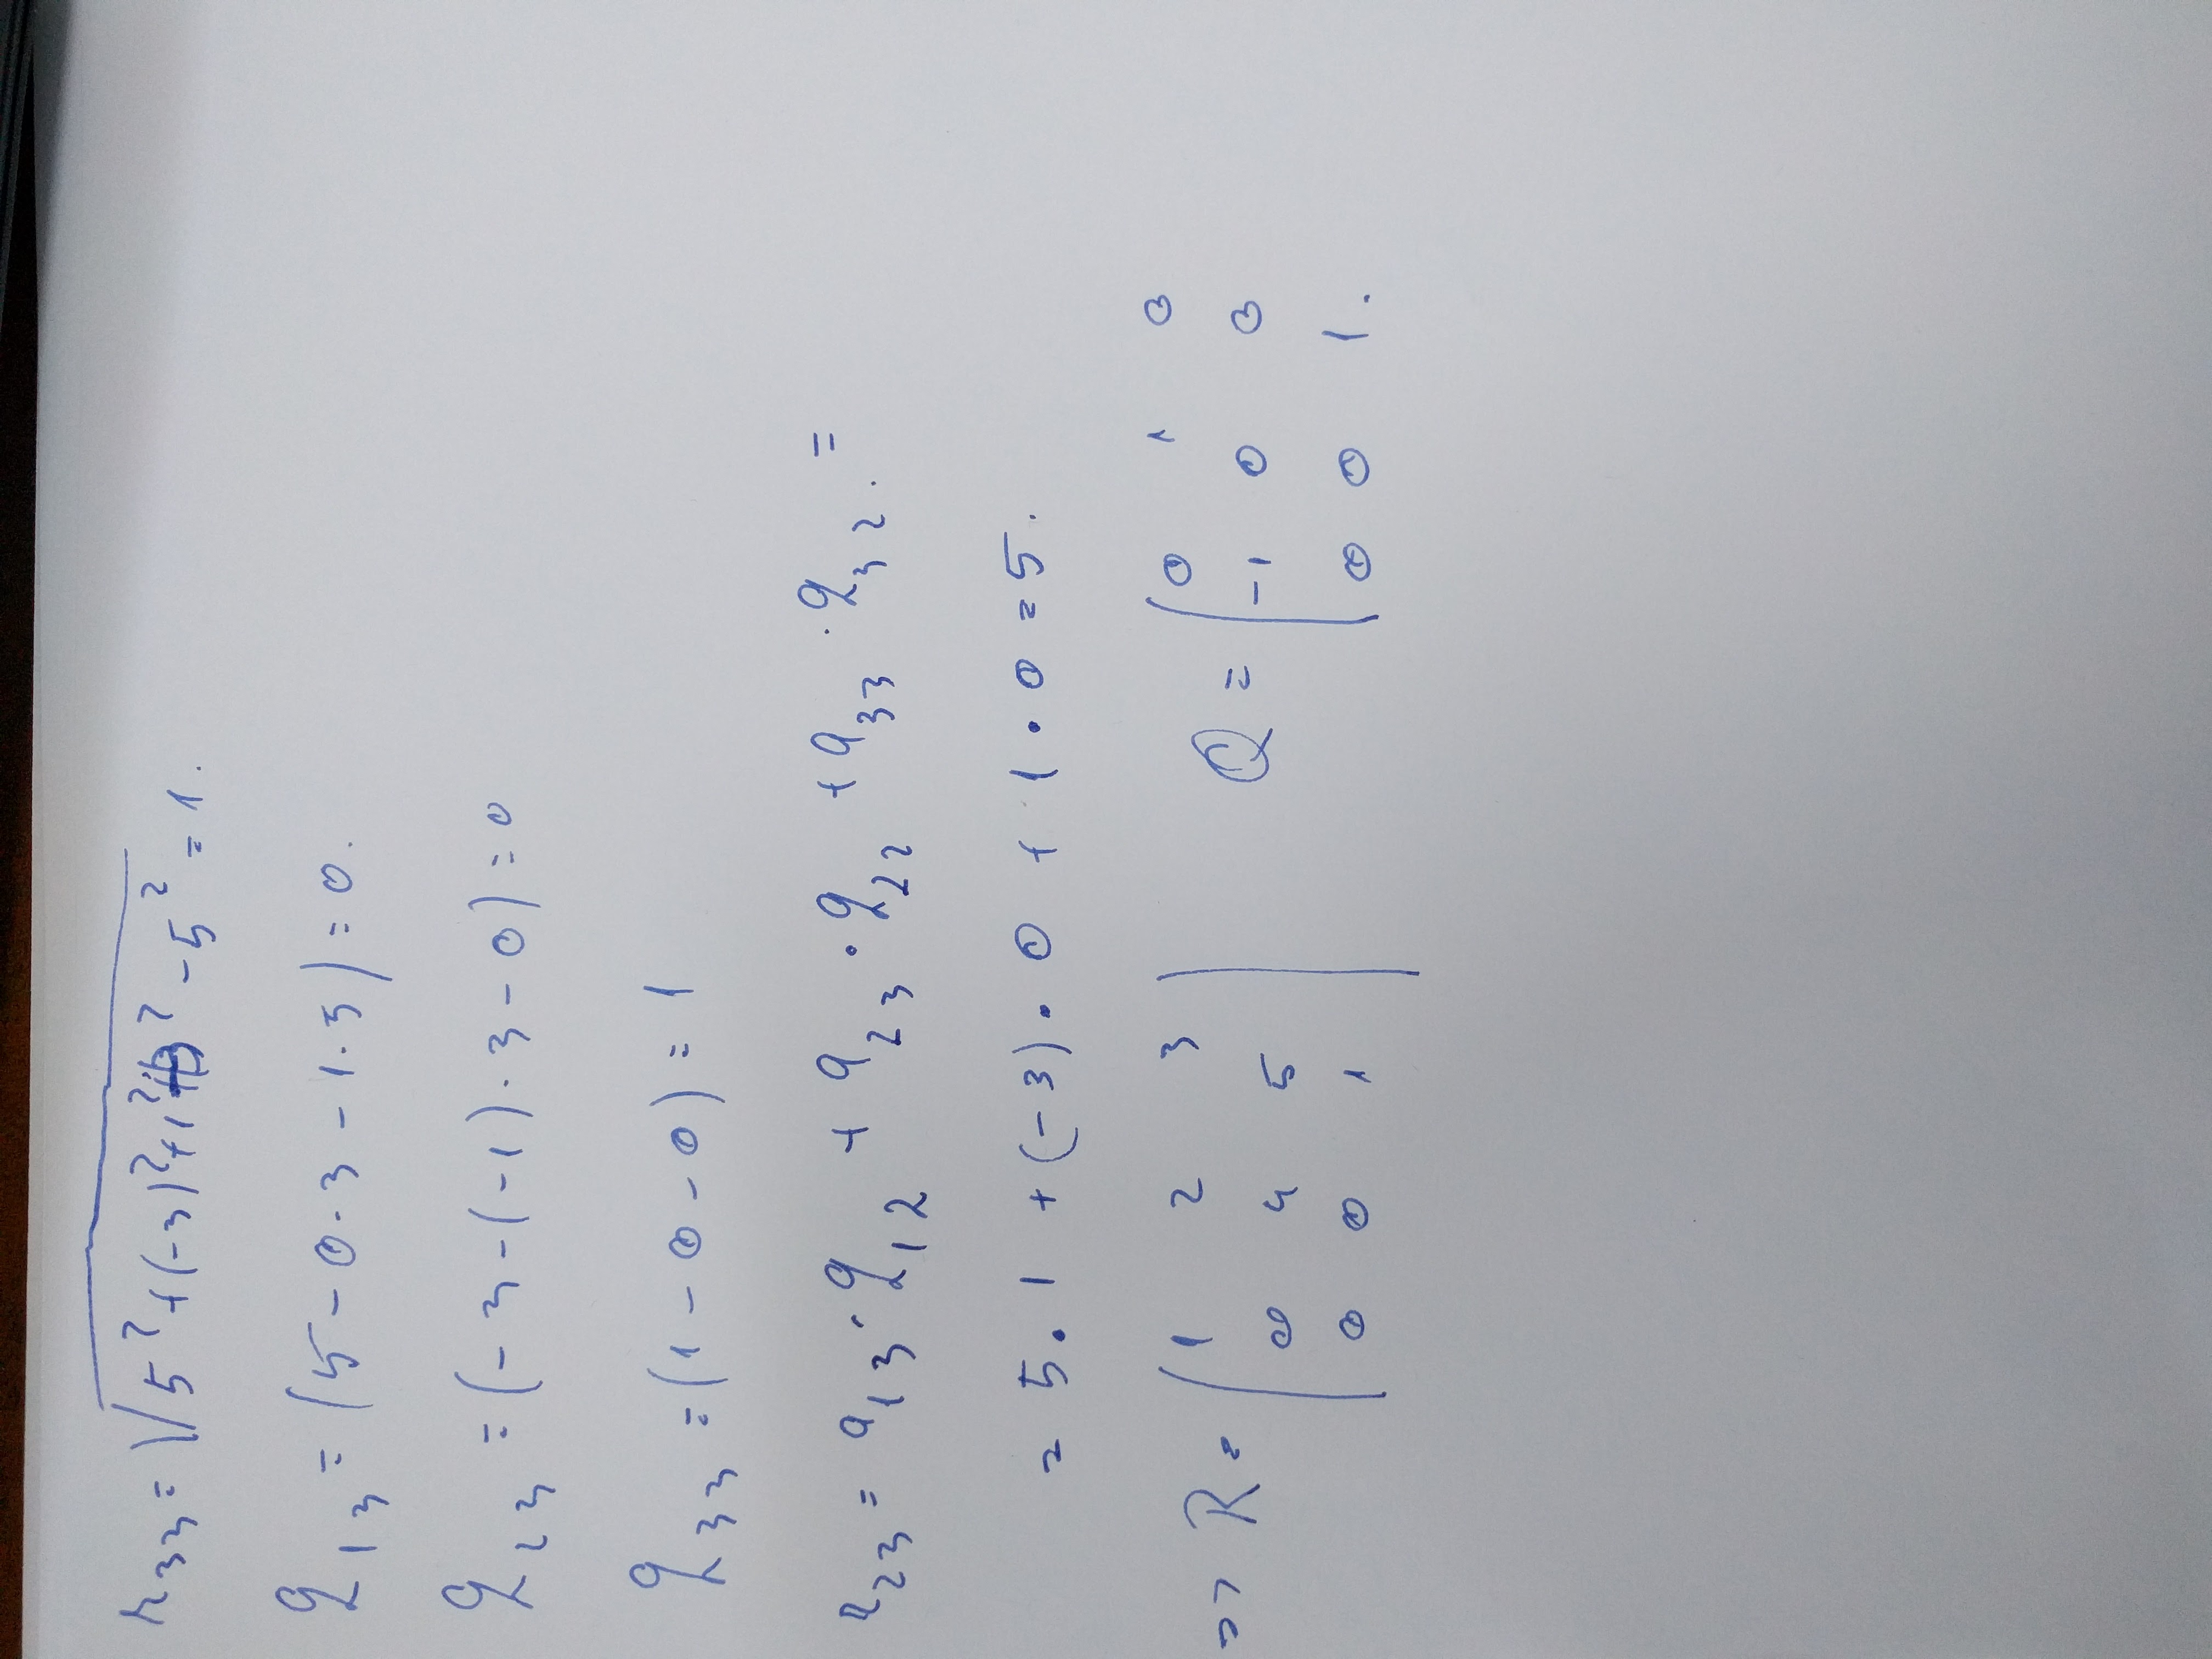 r₃₃ = √(5² + (-3)² + 1² - 3² - 5²) = 1.
q₁₃ = (5 - 0·3 - 1·5) = 0.
q₂₃ = (-3 - (-1)·3 - 0) = 0
q₃₃ = (1 - 0 - 0) = 1
r₂₃ = a₁₃ · q₁₂ + a₂₃ · q₂₂ + a₃₃ · q₃₂. =
= 5 · 1 + (-3) · 0 + 1 · 0 = 5.
=> R = ( 1 2 3 ) Q = ( 0 1 0
0 4 5 -1 0 0
0 0 1 0 0 1.